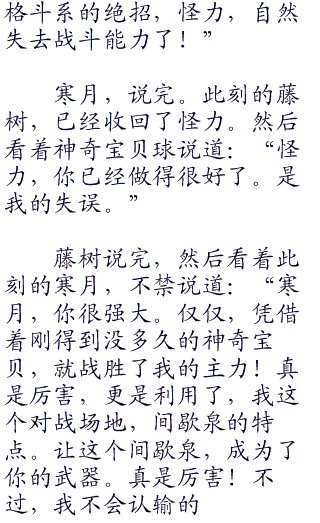 格斗系的绝招，怪力，自然
失去战斗能力了！”
寒月，说完。此刻的藤
树，已经收回了怪力。然后
看着神奇宝贝球说道：“怪
力，你已经做得很好了。是
我的失误。”
藤树说完，然后看着此
刻的寒月，不禁说道：“寒
月，你很强大。仅仅，凭借
着刚得到没多久的神奇宝
贝，就战胜了我的主力！真
是厉害，更是利用了，我这
个对战场地，间歇泉的特
点。让这个间歇泉，成为了
你的武器。真是厉害！不
过，我不会认输的